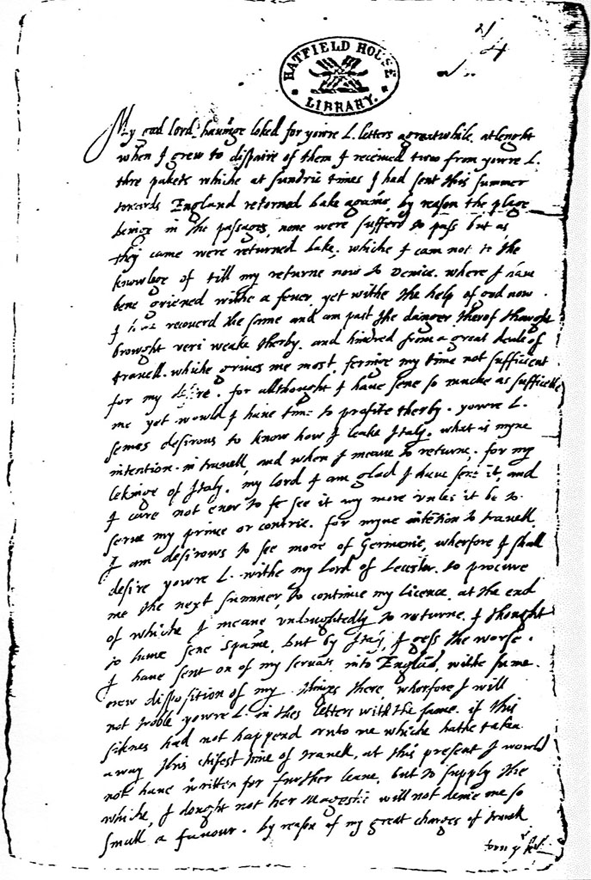 HATFIELD HOUSE
LIBRARY.
My good lord, havinge loked for yowre L. letters a greatwhile, at lenght
when I grew to dispaire of them I received two from yowre L.
thre pakets whiche at sundrie times I had sent this summer
towards England retorned bake againe, by reason the plage
beinge in the passages, none were sufferd to pass but as
they came were returned bake. whiche I cam not to the
knowlege of till my returne now to Venice. where I have
bene grieved withe a fever, yet withe the help of god now
I have recoverd the same and am past the danger therof thowgh
browght veri weake therby. and hindred from a great deale of
travell. whiche grives me most, feringe my time not sufficient
for my desire. for allthought I have sene so muche as sufficethe
me yet would I have time to profite therby. yowre L.
semes desirous to know how I leake Italy. what is myne
intention in travell, and when I meane to returne. for my
lekinge of Italy. my lord I am glad I have sene it, and
I care not ever to se it any more unles it be to
serve my prince or contrie. for myne intention to travell,
I am desirows to see more of Germanie, wherfore I shall
desire yowre L. withe my Lord of Lecester, to procure
me the next summer, to continue my licence, at the end
of whiche I meane undoughtedly to returne. I thought
to have sene Spaine, but by Italy, I gess the worse.
I have sent on of my servants into England, withe sume
new disposition of my things there, wherfore I will
not troble yowre L. in thes letters with the same. if this
siknes had not happend unto me which hathe taken
away this chifest time of travell, at this present I would
not have written for further leave, but to supply the
whiche, I dought not her Magestie will not denie me so
small a favour. by reason of my great charges of travell